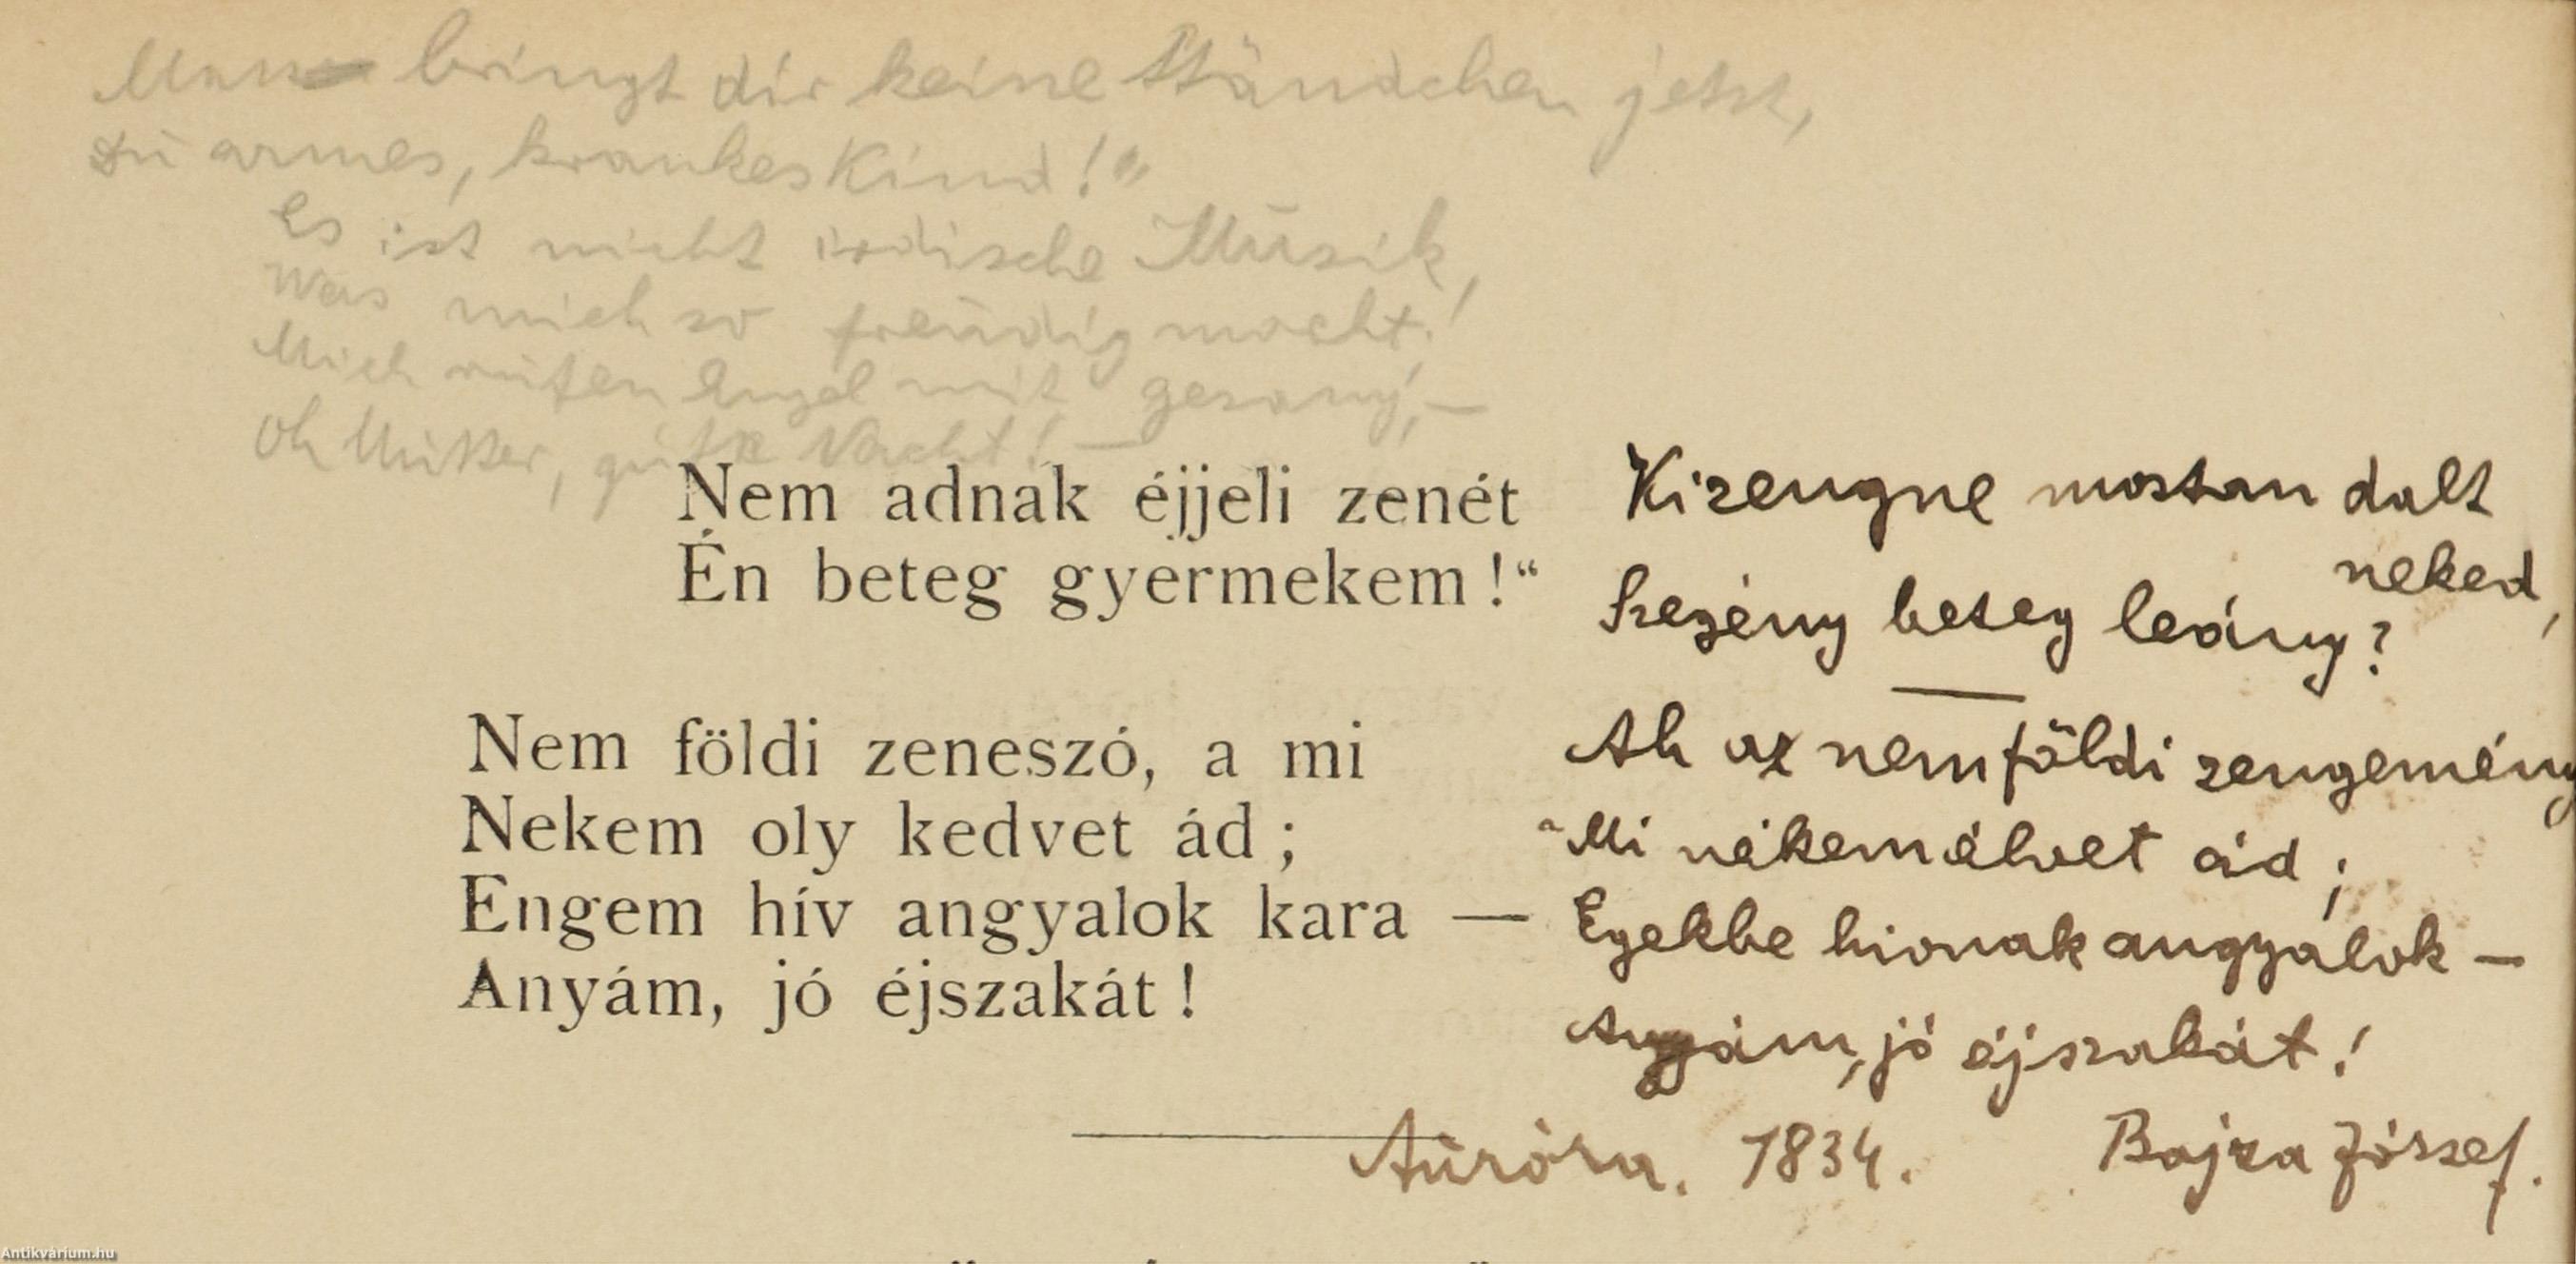 Man bringt dir keine Ständchen jetzt,
Du armes, krankes Kind!"
Es ist nicht irdische Musik,
Was mich so freudig macht!
Mich rufen Engel mit gesang, —
Oh Mutter, gute Nacht! —
Nem adnak éjjeli zenét
Én beteg gyermekem!“
Nem földi zeneszó, a mi
Nekem oly kedvet ád;
Engem hív angyalok kara —
Anyám, jó éjszakát!
Ki zengne mostan dalt
neked,
Szegény beteg leány?
Ah az nem földi zengemény
Mi nékem élvet ád;
Egekbe hívnak angyalok —
Anyám, jó éjszakát!
Auróra. 1834. Bajza József.
Antikvárium.hu